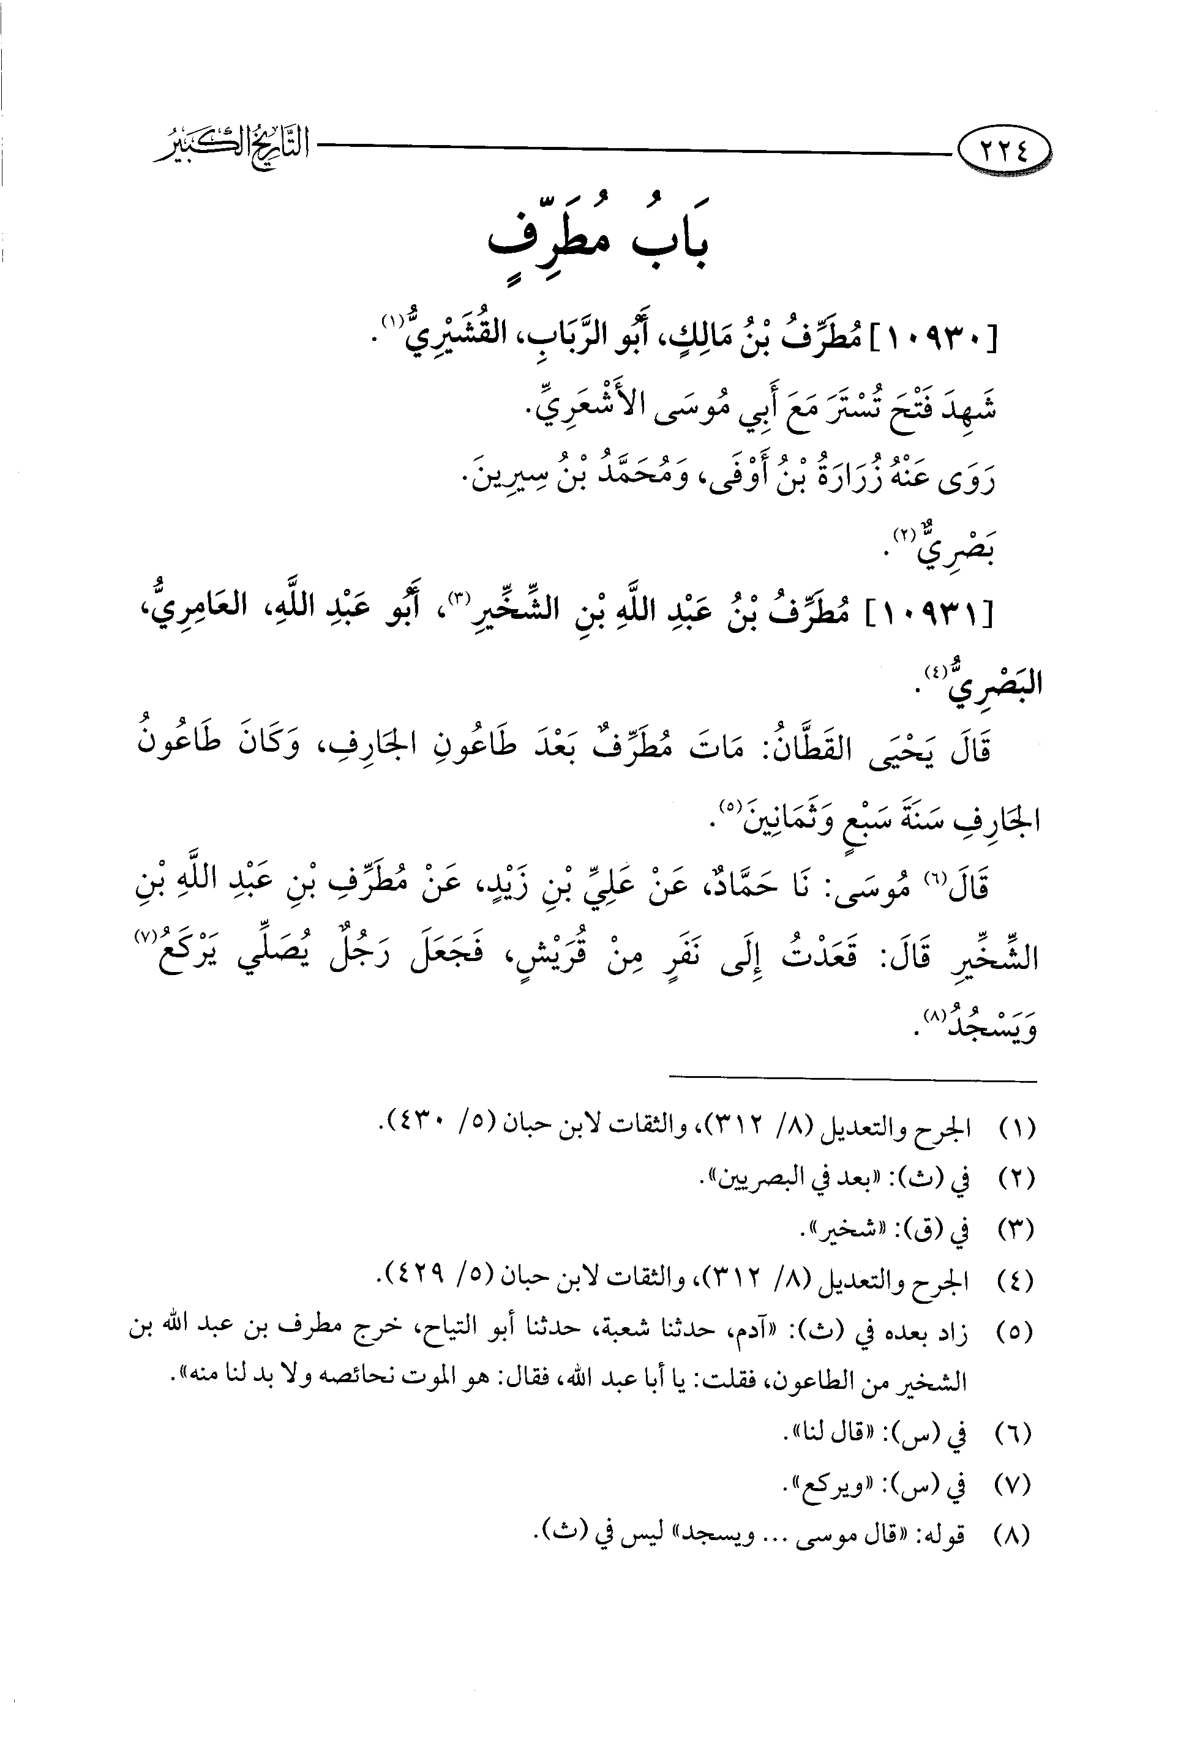 ٢٢٤ التَّارِيخُ الْكَبِيرُ
بَابُ مُطَرِّفٍ
[١٠٩٣٠] مُطَرِّفُ بْنُ مَالِكٍ، أَبُو الرَّبَابِ، القُشَيْرِيُّ(١).
شَهِدَ فَتْحَ تُسْتَرَ مَعَ أَبِي مُوسَى الأَشْعَرِيِّ.
رَوَى عَنْهُ زُرَارَةُ بْنُ أَوْفَى، وَمُحَمَّدُ بْنُ سِيرِينَ.
بَصْرِيٌّ(٢).
[١٠٩٣١] مُطَرِّفُ بْنُ عَبْدِ اللَّهِ بْنِ الشِّخِّيرِ(٣)، أَبُو عَبْدِ اللَّهِ، العَامِرِيُّ،
البَصْرِيُّ(٤).
قَالَ يَحْيَى القَطَّانُ: مَاتَ مُطَرِّفٌ بَعْدَ طَاعُونِ الجَارِفِ، وَكَانَ طَاعُونُ
الجَارِفِ سَنَةَ سَبْعٍ وَثَمَانِينَ(٥).
قَالَ(٦) مُوسَى: نَا حَمَّادٌ، عَنْ عَلِيِّ بْنِ زَيْدٍ، عَنْ مُطَرِّفِ بْنِ عَبْدِ اللَّهِ بْنِ
الشِّخِّيرِ قَالَ: قَعَدْتُ إِلَى نَفَرٍ مِنْ قُرَيْشٍ، فَجَعَلَ رَجُلٌ يُصَلِّي يَرْكَعُ(٧)
وَيَسْجُدُ(٨).
(١) الجرح والتعديل (٨/ ٣١٢)، والثقات لابن حبان (٥/ ٤٣٠).
(٢) في (ث): «بعد في البصريين».
(٣) في (ق): «شخير».
(٤) الجرح والتعديل (٨/ ٣١٢)، والثقات لابن حبان (٥/ ٤٢٩).
(٥) زاد بعده في (ث): «آدم، حدثنا شعبة، حدثنا أبو التياح، خرج مطرف بن عبد الله بن
الشخير من الطاعون، فقلت: يا أبا عبد الله، فقال: هو الموت نحائصه ولا بد لنا منه».
(٦) في (س): «قال لنا».
(٧) في (س): «ويركع».
(٨) قوله: «قال موسى ... ويسجد» ليس في (ث).